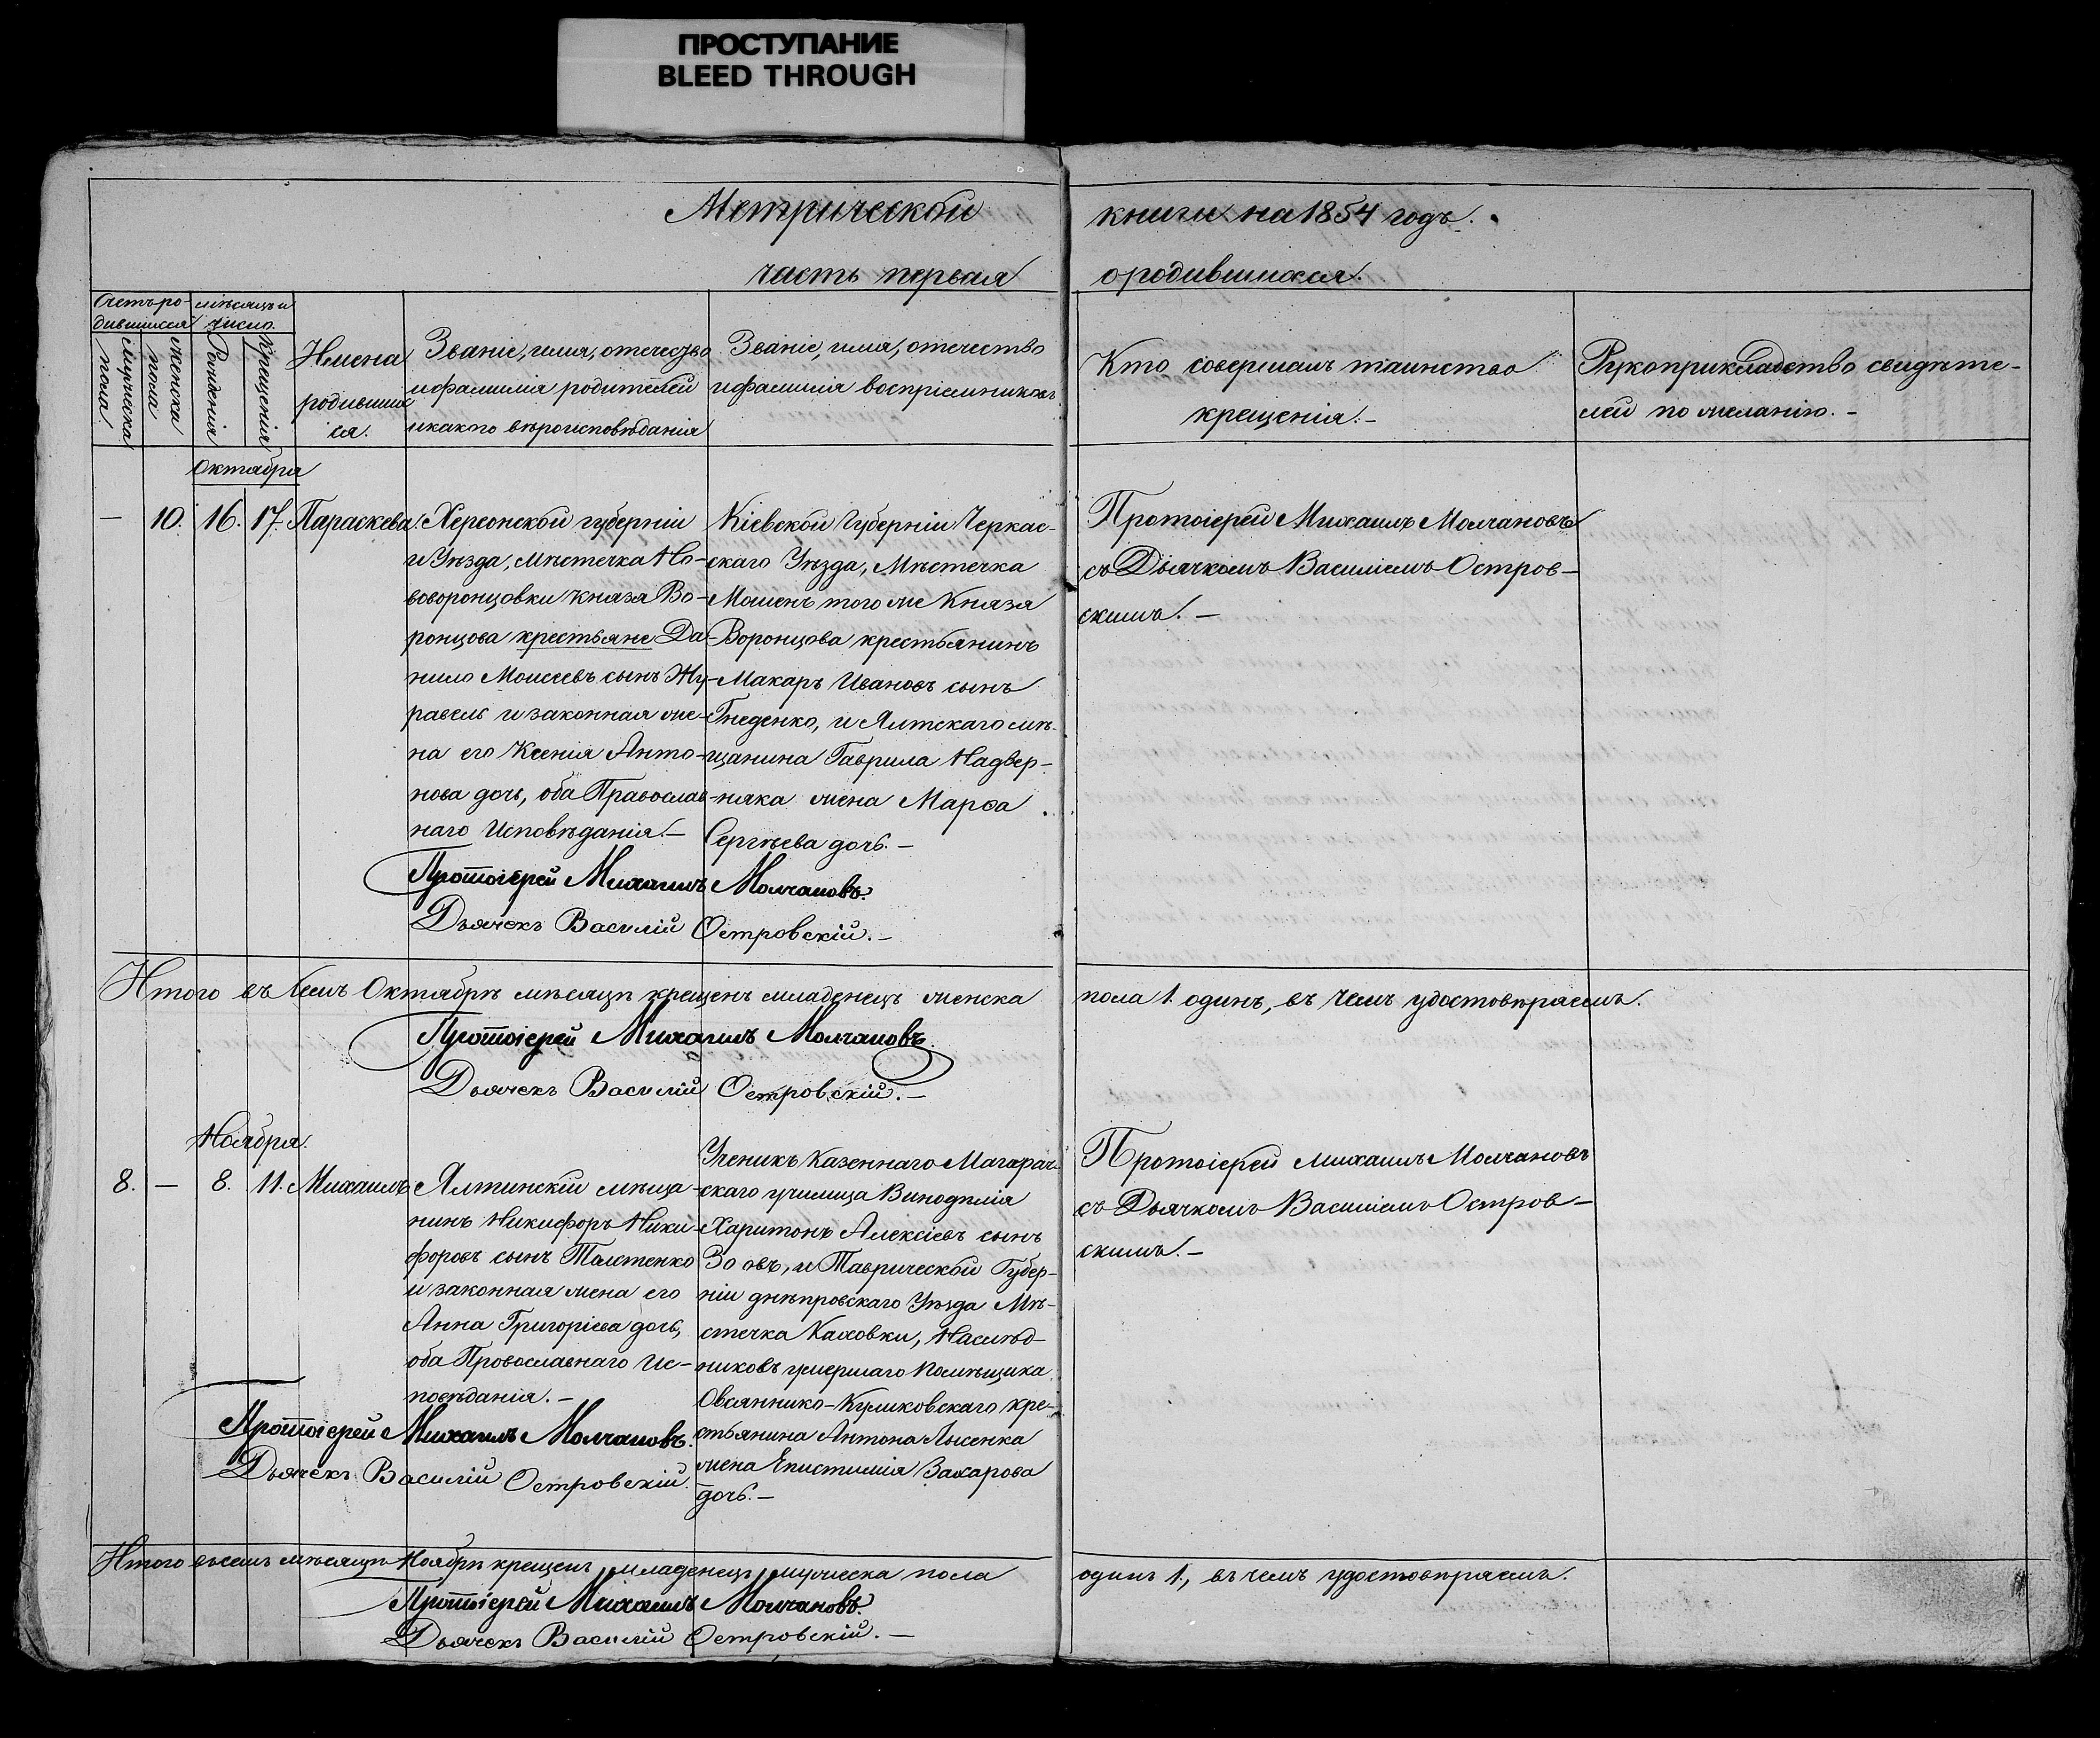 ПРОСТУПАНИЕ
BLEED THROUGH
Метрической книги на 1854 годъ.
часть первая о родившихся.
Счетъ ро-
дившихся
Мужеска
пола
женска
пола
мѣсяцъ и
число.
Рожденія
Крещенія
Имена
родивших
ся.
Званіе, имя, отечество
и фамилія родителей
и какого вѣроисповѣданія
Званіе, имя, отечество
и фамилія воспріемниковъ
Кто совершалъ таинство
крещенія. –
Рукоприкладство свидѣте-
лей по желанію. –
Октября
– 10. 16. 17. Параскева
Херсонской губерніи
и Уѣзда, Мѣстечка Но-
воворонцовки князя Во-
ронцова крестьяне Да-
нило Моисеевъ сынъ Жу-
равель и законная же-
на его Ксенія Анто-
нова дочь, оба Православ-
наго Исповѣданія. –
Кіевской Губерніи Черкас-
скаго Уѣзда, Мѣстечка
Мошенъ того же Князя
Воронцова крестьянинъ
Макаръ Ивановъ сынъ
Гнеденко, и Ялтскаго мѣ-
щанина Гаврила Надвер-
няка жена Марѳа
Сергѣева дочь. –
Протоіерей Михаилъ Молчановъ
съ Дьячкомъ Василіемъ Остров-
скимъ. –
Протоіерей Михаилъ Молчановъ.
Дьячекъ Василій Островскій. –
Итого въ семъ Октябрѣ мѣсяцѣ крещенъ младенецъ женска пола 1. одинъ, въ чемъ удостовѣряемъ.
Протоіерей Михаилъ Молчановъ.
Дьячекъ Василій Островскій. –
Ноября.
8. – 8. 11. Михаилъ
Ялтинскій мѣща-
нинъ Никифоръ Ники-
форовъ сынъ Толстенко
и законная жена его
Анна Григоріева дочь,
оба Провославнаго Ис-
повѣданія. –
Ученикъ Казеннаго Магарач-
скаго училища Винодѣлія
Харитонъ Алексіевъ сынъ
и Таврической Губер-
ніи днѣпровскаго Уѣзда Мѣ-
стечка Каховки, Наслѣд-
никовъ умершаго Помѣщика
Овсяннико-Куликовскаго кре-
стьянина Антона Лысенка
жена Епистимія Захарова
дочь. –
Протоіерей Михаилъ Молчановъ
съ Дьячкомъ Василіемъ Остров-
скимъ. –
Протоіерей Михаилъ Молчановъ.
Дьячекъ Василій Островскій.
Итого въ семъ мѣсяцѣ Ноябрѣ крещенъ младенецъ мужеска пола одинъ 1., въ чемъ удостовѣряемъ.
Протоіерей Михаилъ Молчановъ.
Дьячекъ Василій Островскій. –